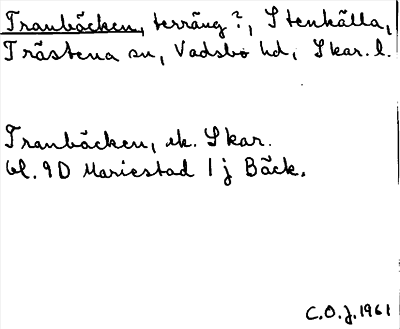 Tranbäcken, terräng?, Stenkälla,
Trästena sn, Vadsbo hd, Skar. l.
Tranbäcken, ek. Skar.
bl. 9D Mariestad 1 j Bäck.
C.O.J. 1961